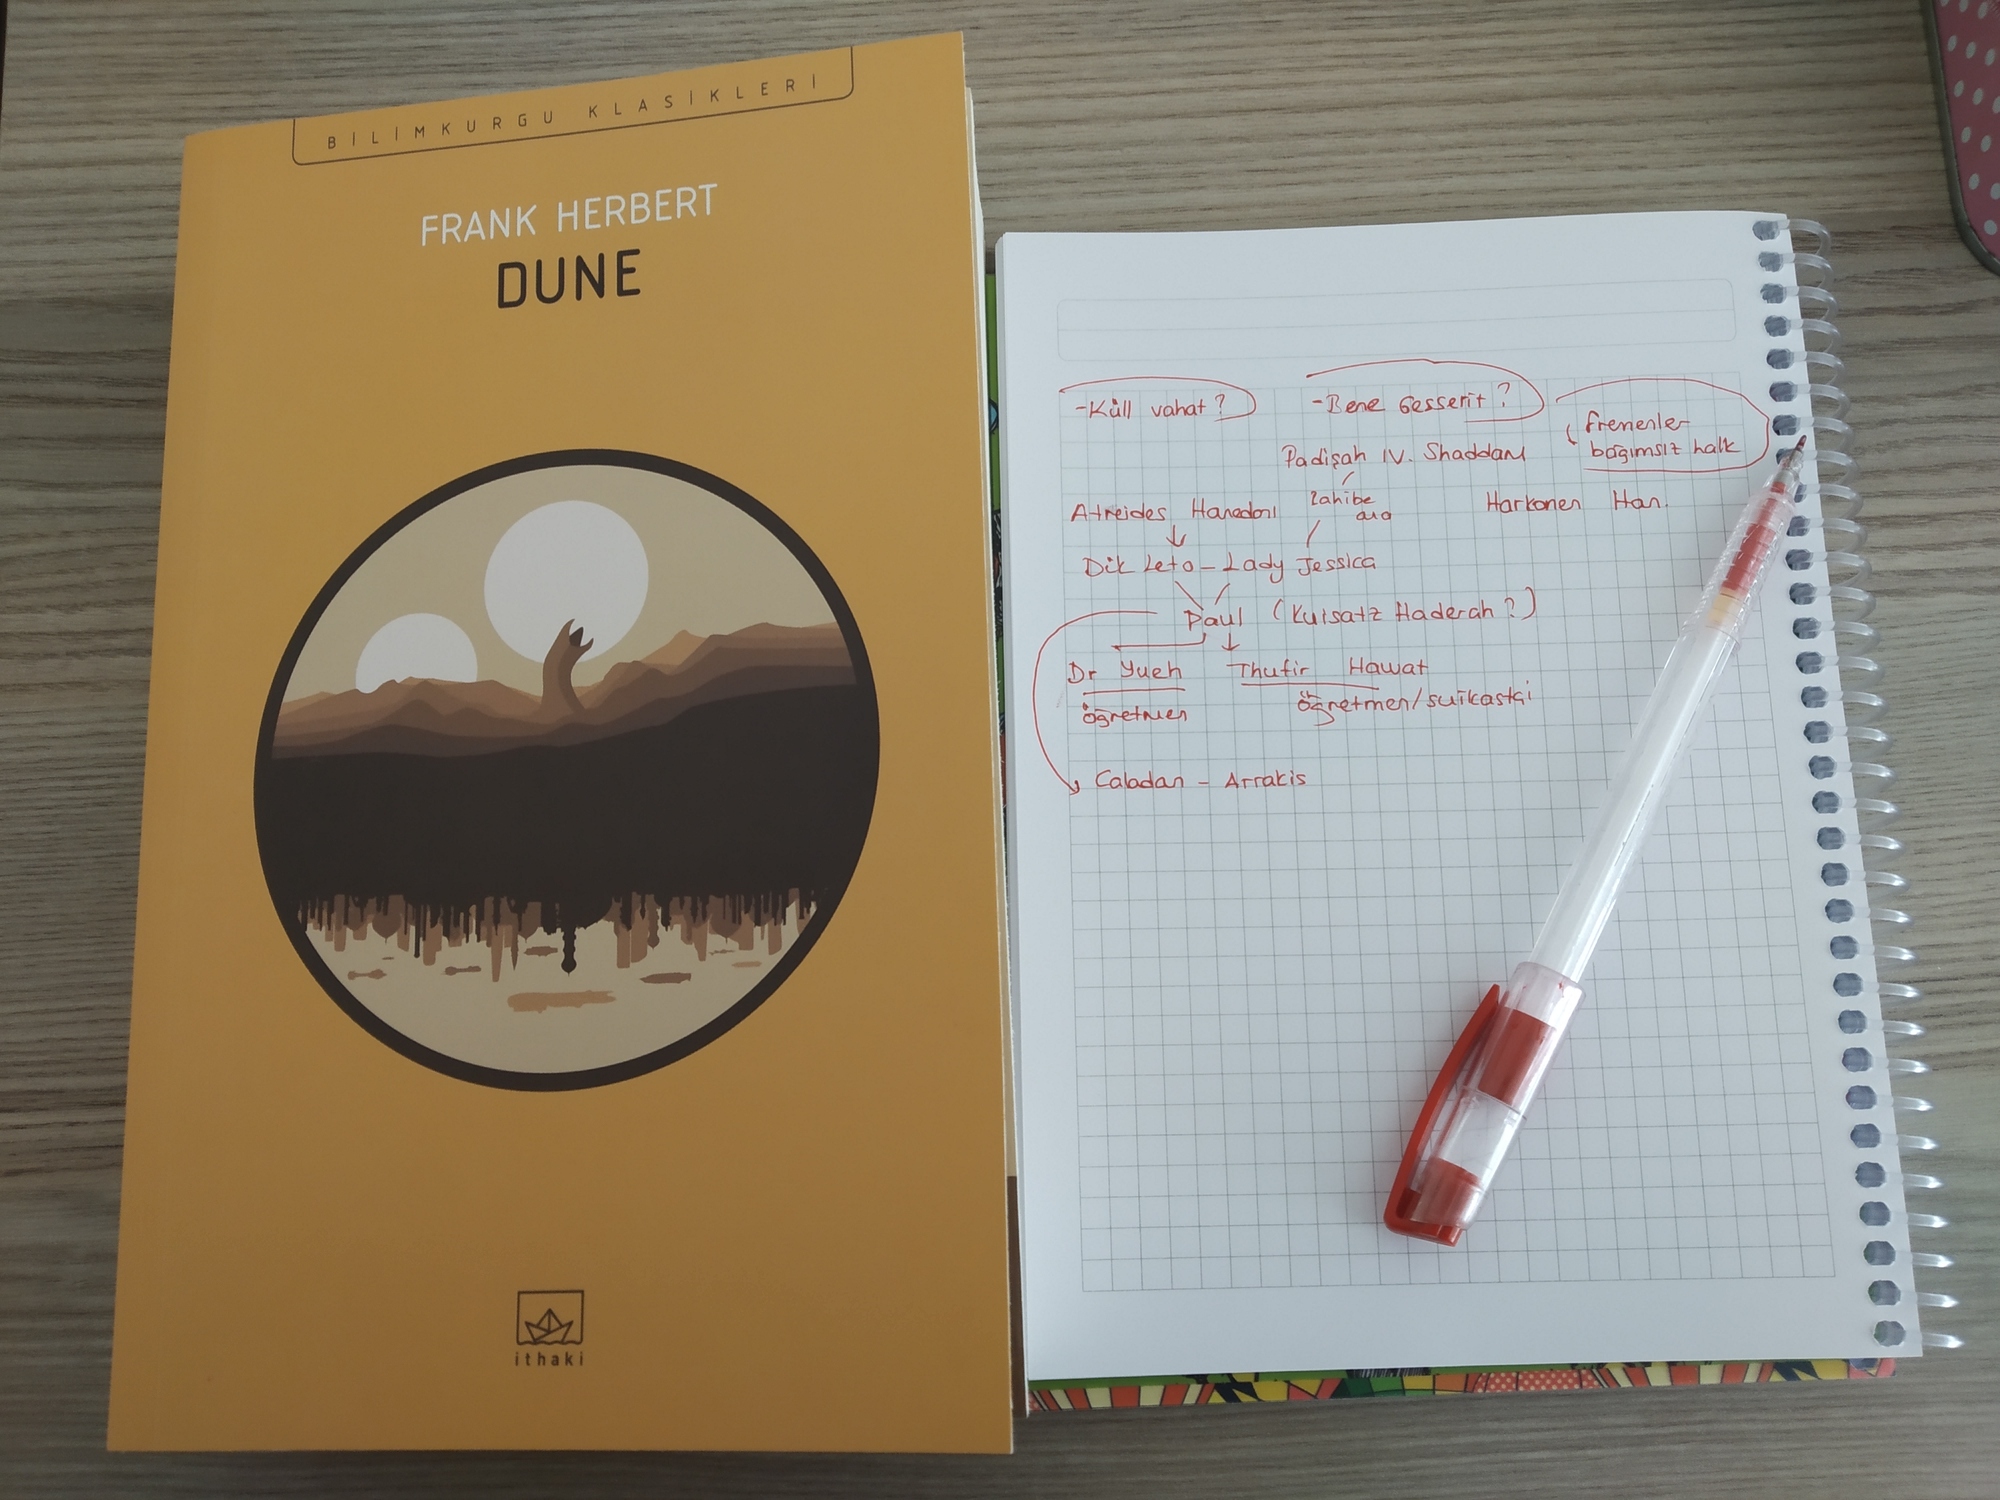 BİLİMKURGU KLASİKLERİ
FRANK HERBERT
DUNE
ithaki
-Küll vahat?
-Bene Gesserit?
fremenler
bağımsız halk
Padişah IV. Shaddam
Atreides Hanedanı
rahibe
ana
Harkonen Han.
Dük Leto - Lady Jessica
Paul (Kuisatz Haderah?)
Dr Yueh
Thufir Hawat
öğretmen
öğretmen/suikastçi
Caladan - Arrakis